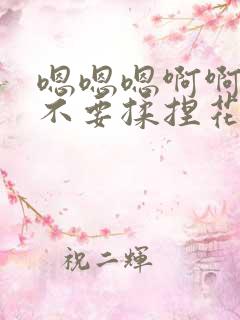 嗯嗯嗯啊啊
不要揉捏花
祝二輝